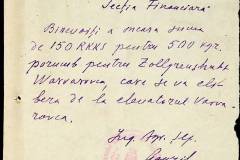 Secția Financiară
Binevoiți a încasa suma
de 150 RKKS pentru 500 kgr.
porumb pentru Zollgrenzschutz
Warwarowca, care se va eli-
bera de la elevatorul Varva-
rovca.
Ing. Agr. Șef.